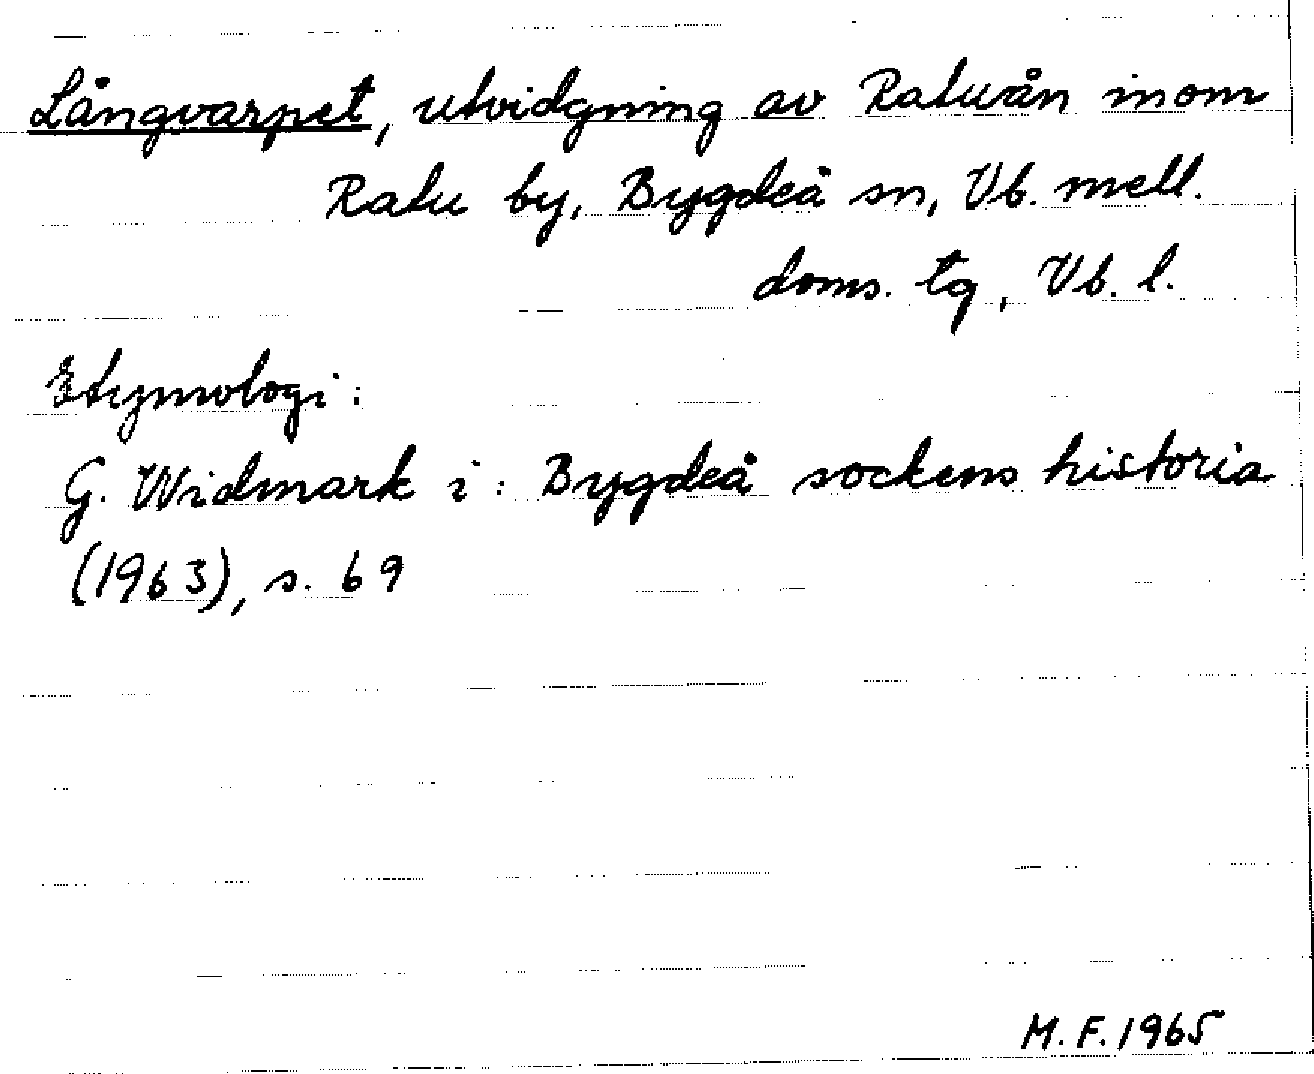 Långvarpet, utvidgning av Ratuån inom
Ratu by, Bygdeå sn, Vb. mell.
doms. tg, Vb. l.
Etymologi:
G. Widmark i: Bygdeå sockens historia
(1963), s. 69
M. F. 1965